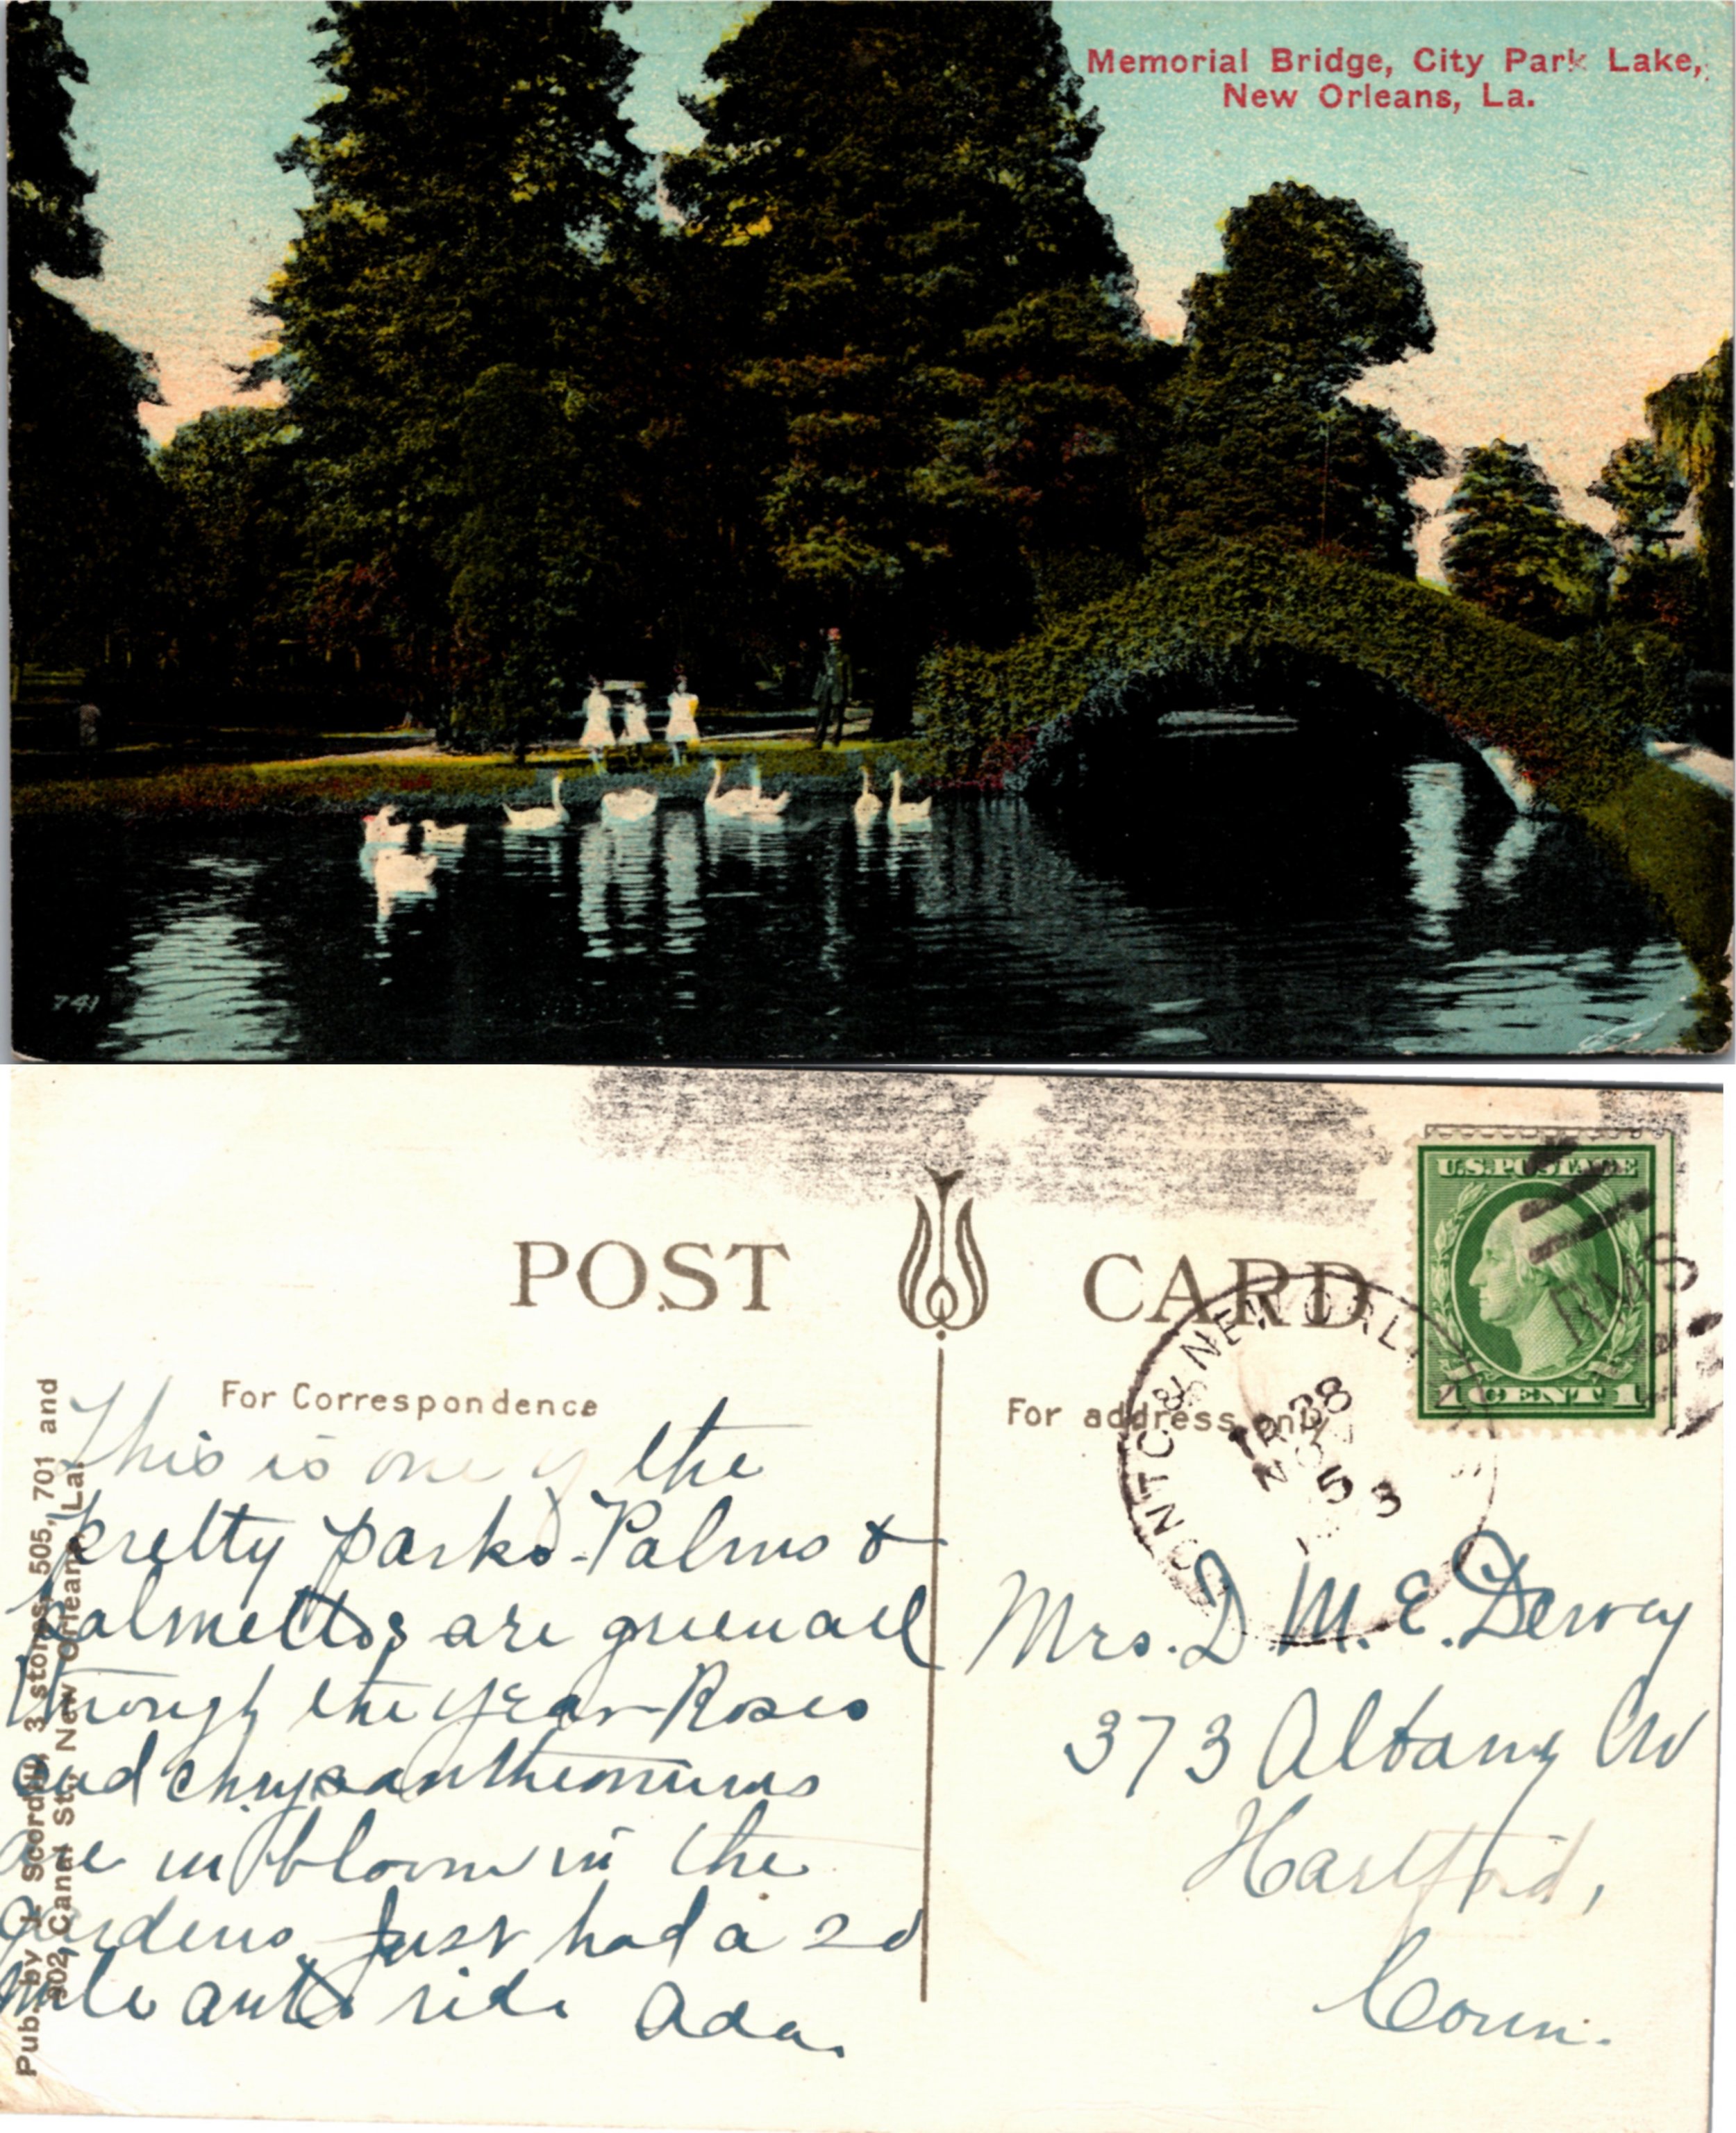 Memorial Bridge, City Park Lake,
New Orleans, La.
741
POST CARD
U.S. POSTAGE
1 CENT 1
RMS
& NEW ORL
TR 38
NOV
5
3
For Correspondence
For address only
This is one of the
pretty parks - Palms &
palmettos are green all
through the year - Roses
and chrysanthemums
are in bloom in the
gardens. Just had a 20
mile auto ride Ada.
Mrs. D. M. E. Dewey
373 Albany Av
Hartford,
Conn.
Pub. by I. Scordill, 3 stores, 505, 701 and
902, Canal St., New Orleans, La.